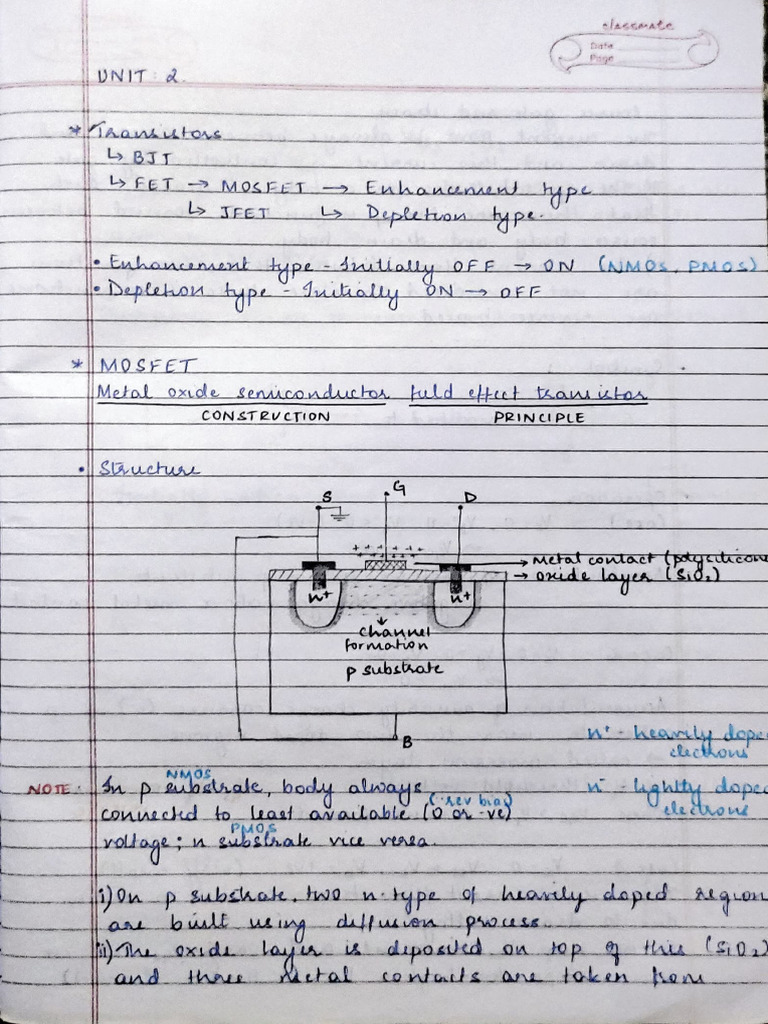 classmate
Date
Page
UNIT : 2.
* Transistors
↳ BJT
↳ FET → MOSFET → Enhancement type
↳ JFET ↳ Depletion type.
• Enhancement type - Initially OFF → ON (NMOS, PMOS)
• Depletion type - Initially ON → OFF
* MOSFET
Metal oxide semiconductor field effect transistor
CONSTRUCTION PRINCIPLE
• Structure
S G D
+ + + + + + +
→ Metal contact (polysilicone
→ oxide layer (SiO₂)
n⁺ n⁺
channel
formation
p substrate
B
n⁺ - heavily doped
electrons
NMOS
NOTE: In p substrate, body always
n⁻ - lightly doped
electrons
(∵ rev bias)
connected to least available (0 or -ve)
PMOS
voltage ; n substrate vice versa.
i) On p substrate, two n-type of heavily doped region
are built using diffusion process.
ii) The oxide layer is deposited on top of this (SiO₂)
and three metal contacts are taken from